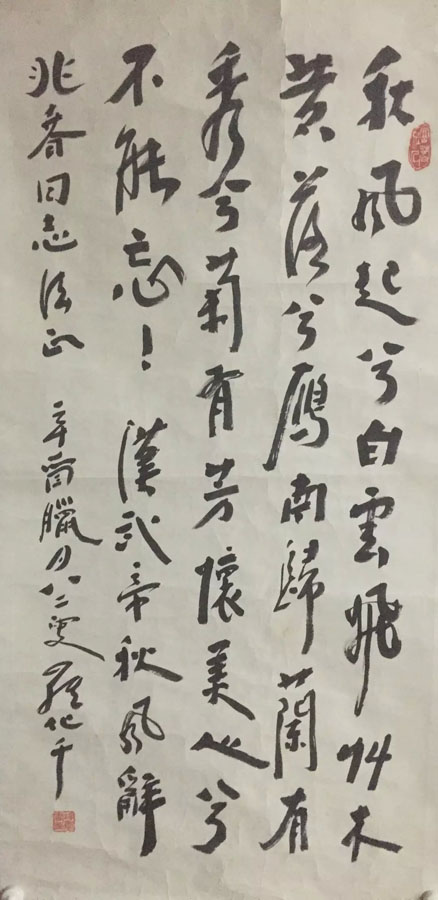 秋風起兮白雲飛艸木
黄落兮鴈南歸蘭有
秀兮菊有芳懷美人兮
不能忘！漢武帝秋風辭
兆春同志法正 辛酉臘月叟羅化千